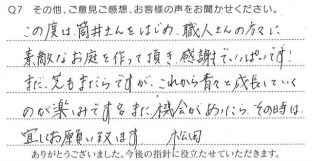 Q7 その他、ご意見ご感想、お客様の声をお聞かせください。
この度は、筒井さんをはじめ、職人さんの方々に
素敵なお庭を作って頂き、感謝でいっぱいです!
まだ、芝もまだらですが、これから青々と成長していく
のが楽しみです。また、機会があったら、その時は、
宜しくお願い致します 松田
ありがとうございました。今後の指針に役立たせていただきます。